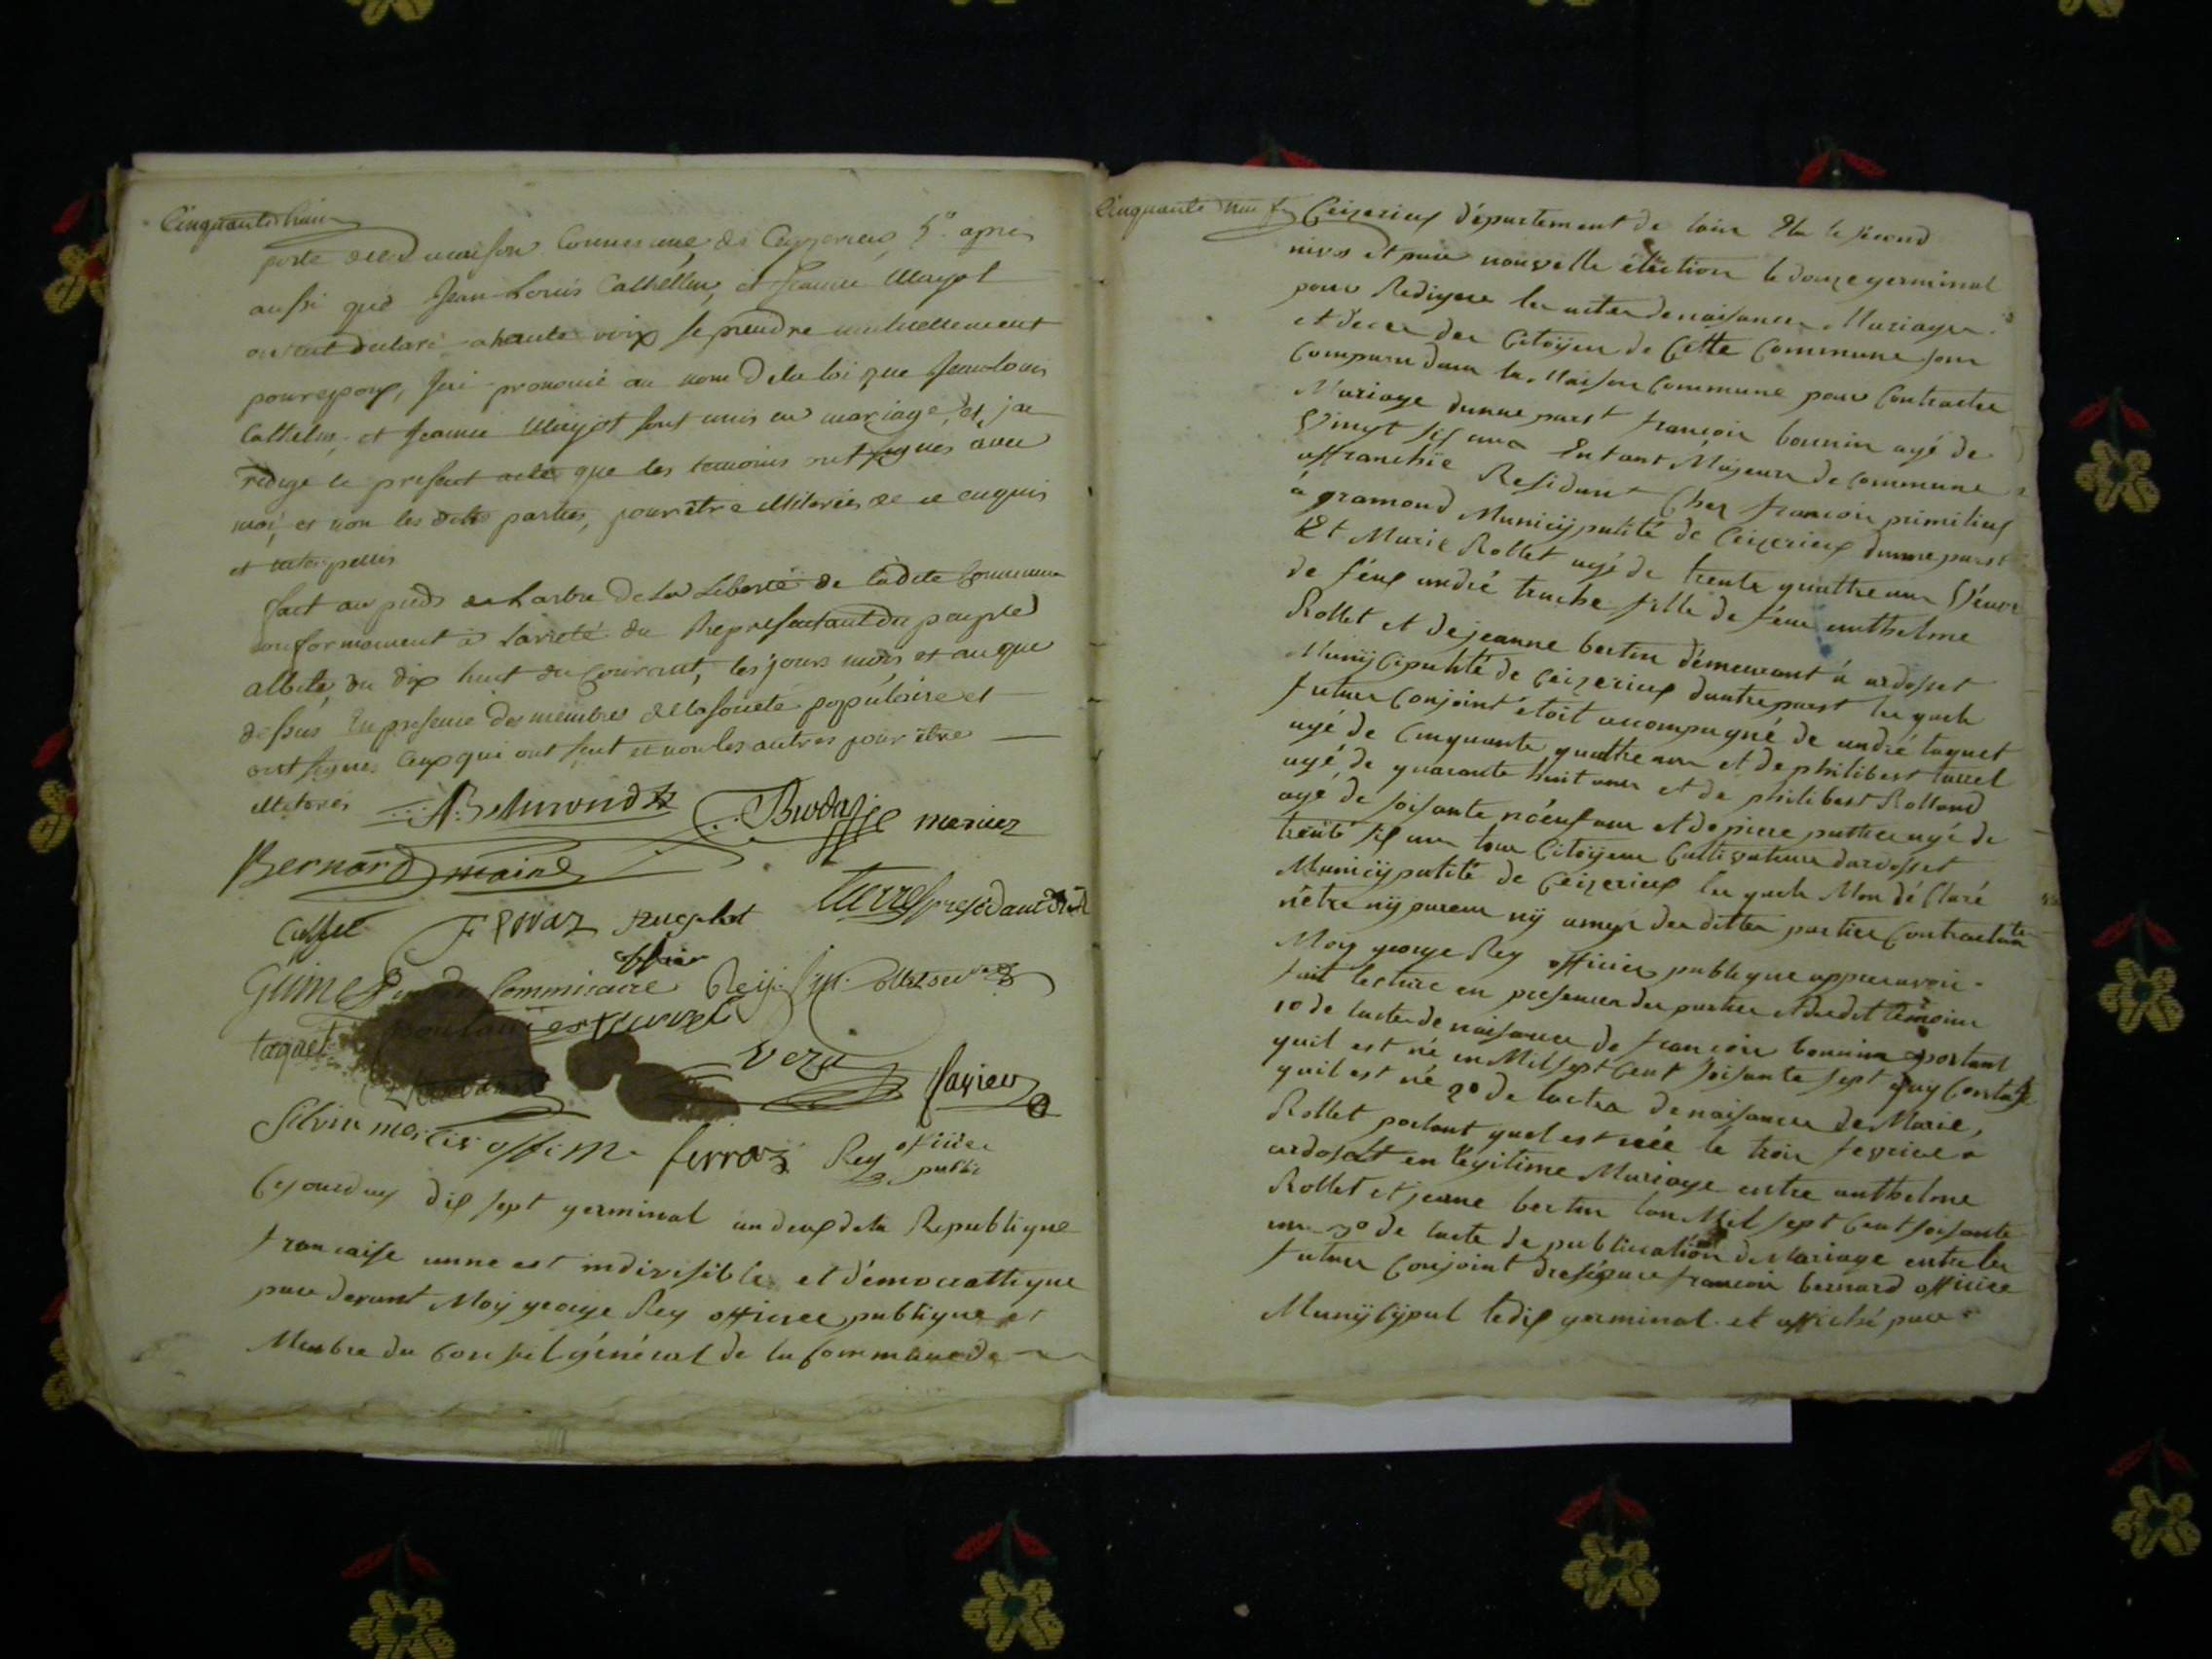 Cinquante huit
porte de la maison Commune de Ceyzerieu, 5° apres
aussi que Jean-Louis Cathellin, et Jeanne Mayot
ont declaré a haute voix se prendre mutuellement
pour epoux, j'ai prononcé au nom de la loi que Jean Louis
Cathelin, et Jeanne Mayot sont unis en mariage, et j'ai
redigé le present acte que les temoins ont signés avec
moi, et non les dites parties, pour être illiterées de ce enquis
et interpellés
fait au pieds de Larbre de La Liberté de ladite Commune
conformement à Larreté du Representant du peuple
albite, du dix huit du Courant, les jours mois et an que
dessus En presence des membres de la societé populaire et
ont signes Ceux qui ont sçut et non les autres pour être
illiterés
Brodas mercier
Bernard maire
Cusset ferraz
president
Guinet Commissaire Reij
taquet
very
favier
Silvin mercier offi m. ferraz Rey officier
public
Cejourduy dix sept germinal an deux de la Republique
francaise unne est indivisible et démocrattique
par devant Moy george Rey officier publique et
Menbre du Conseil général de la Commune de
Cinquante neuf
Ceizerieux département de lain Elu le second
nivos et par nouvelle élection le douze germinal
pour Rediger les actes de naisances Mariages
et deces des Citoÿens de Cette Commune sont
Comparu dans la Maison Commune pour Contracter
Mariage dunne part françois bonnin agé de
Vingt six ans Enfant Majeur de Commune
affranchie Residant Chez francois primilieux
à gramond Municÿpalité de Ceizerieux dunne part
Et Marie Rollet agé de trente quattre ans Véuve
de féux andré truche fille de féux anthelme
Rollet et de jeanne bertin démeurant à ardosset
Munÿcipalité de Ceizerieux dautre part les quels
futurs Conjoint étoit accompagné de andré taquet
agé de Cinquante quattre ans et de philibert
agé de quarante huit ans et de philibert Rolland
agé de soisante néuf ans et de pierre agé de
trente six ans tous Citoÿens Cultivateurs dardosset
Municÿpalité de Ceizerieux les quels Mon déClaré
nétre nÿ parens nÿ amys des dittes parties Contractantes
Moy george Rey officier publique appres avoir
fait lecture en presence des parties et desdit témoins
1o de lacte de naisance de francois bonnin portant
quil est né en Mil sept Cent soisante sept
quil est né 2o de lacte de naisance de Marie
Rollet portant quel est née le trois fevrier à
ardosset en légitime Mariage entre anthelme
Rollet et jeanne bertin lan Mil sept Cent soisante
un 3o de lacte de publication de Mariage entre les
futurs Conjoint dressé par francois bernard officier
Munÿcÿpal le dix germinal et affiché par